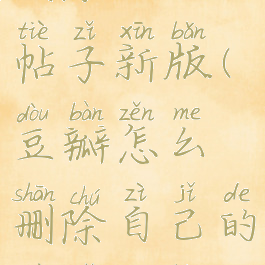 tiè zǐ xīn bǎn
帖子新版(
dòu bàn zěn me
豆瓣怎么
shān chú zì jǐ de
删除自己的